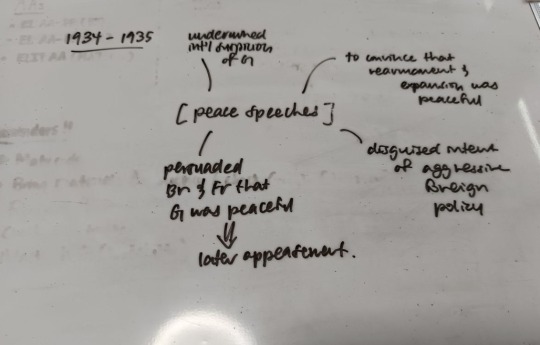 1934 - 1935
undermined
int'l suspicion
of G
to convince that
rearmament &
expansion was
peaceful
[peace speeches]
persuaded
Br & Fr that
G was peaceful
later appeasement.
disguised intent
of aggressive
foreign
policy